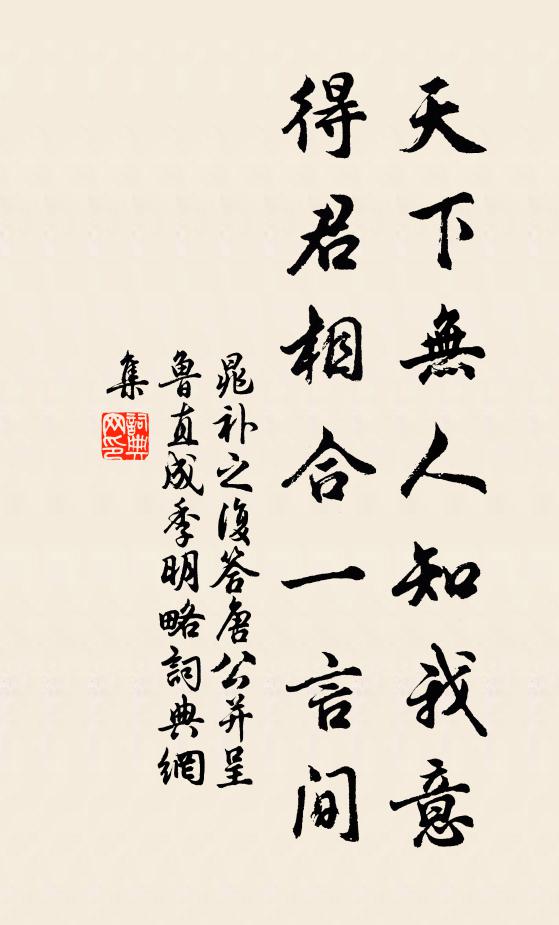 天下無人知我意
得君相合一言間
晁补之復答唐公并呈
魯直成季明略詞典網
集
詞典網印